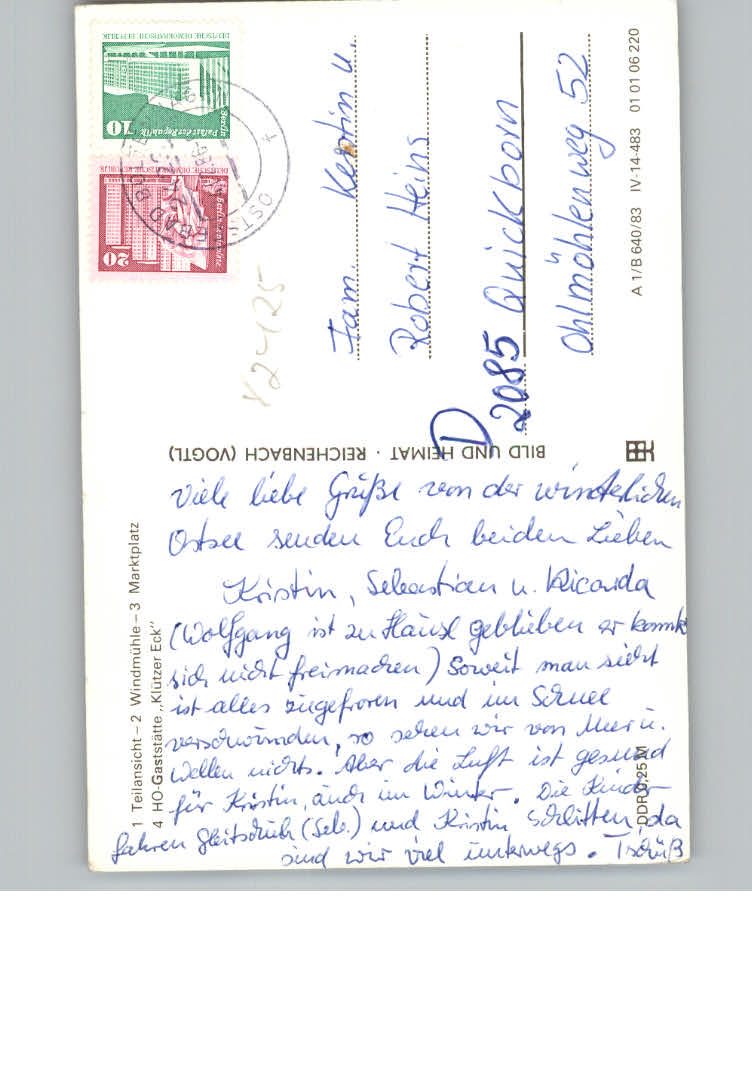 Viele liebe Grüße von der winterlichen
Ostsee senden Euch beiden Lieben
Kristin, Sebastian u. Ricarda
(Wolfgang ist zu Hause geblieben er konnte
sich nicht freimachen) Soweit man sieht
ist alles zugefroren und im Schnee
verschwunden, so sehen wir von Meer u.
Wellen nichts. Aber die Luft ist gesund
für Kristin, auch im Winter. Die Kinder
fahren Gleitschuh (Seb.) und Kristin Schlitten, da
sind wir viel unterwegs. Tschüß
Fam. Kerstin u.
Robert Heins
D 2085 Quickborn
Ohlmöhlenweg 52
1 Teilansicht – 2 Windmühle – 3 Marktplatz
4 HO-Gaststätte „Klützer Eck"
BILD UND HEIMAT · REICHENBACH (VOGTL)
A 1/B 640/83 IV-14-483 01 01 06 220
DDR 0,25 M
DEUTSCHE DEMOKRATISCHE REPUBLIK
Berlin
Palast der Republik
10
DEUTSCHE DEMOKRATISCHE REPUBLIK
Berlin, Leninplatz
20
OSTSEEBAD